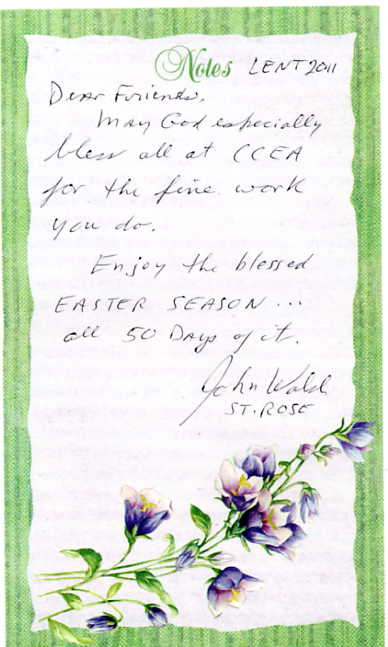 Notes LENT 2011
Dear Friends,
May God especially
bless all at CCEA
for the fine work
you do.
Enjoy the blessed
EASTER SEASON...
all 50 Days of it.
John Wald
ST. ROSE